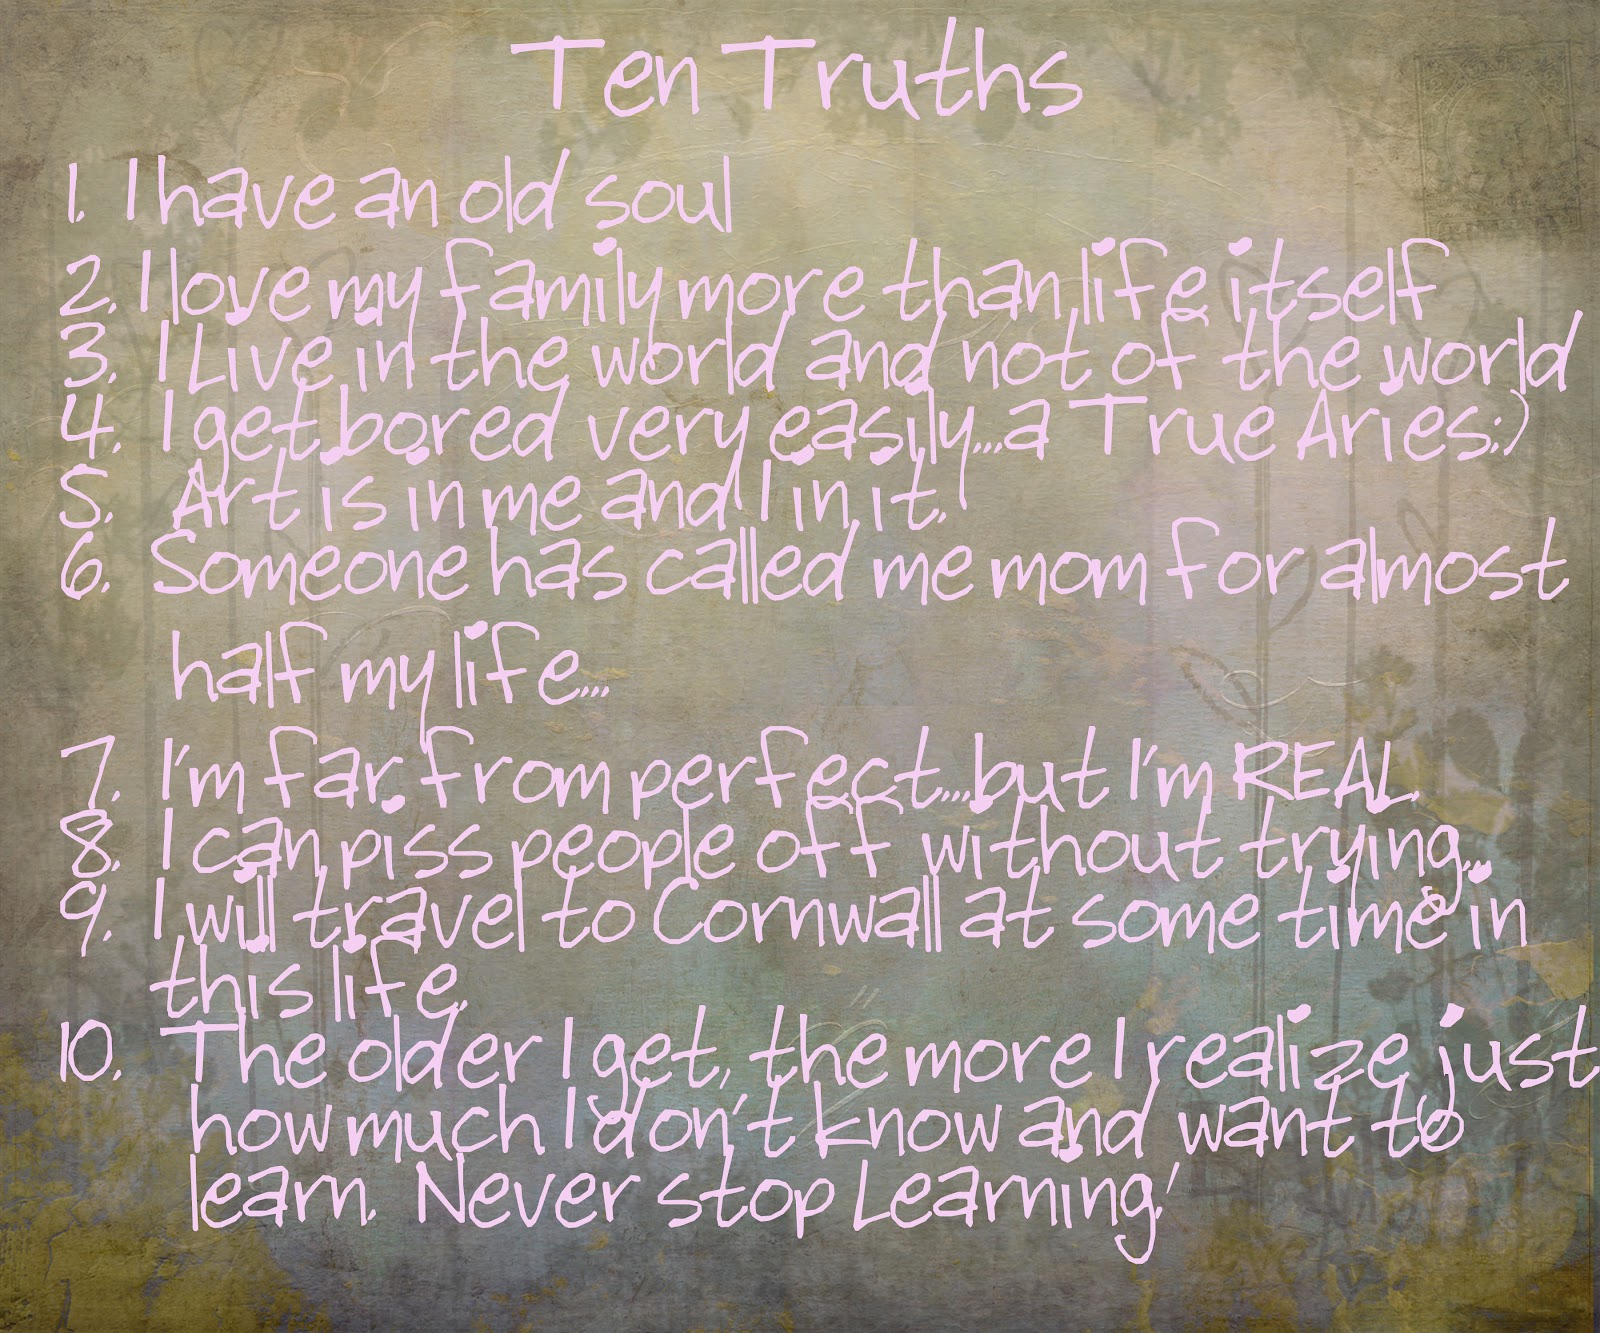 Ten Truths
1. I have an old soul
2. I love my family more than life itself
3. I Live in the world and not of the world
4. I get bored very easily...a True Aries:)
5. Art is in me and I in it.
6. Someone has called me mom for almost
half my life...
7. I'm far from perfect...but I'm REAL.
8. I can piss people off without trying...
9. I will travel to Cornwall at some time in
this life.
10. The older I get, the more I realize just
how much I don't know and want to
learn. Never stop Learning!